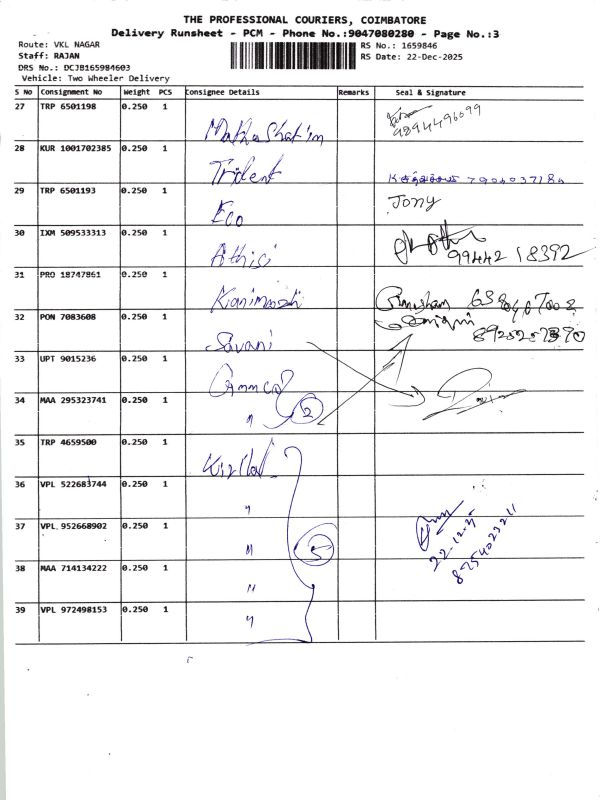 THE PROFESSIONAL COURIERS, COIMBATORE
Delivery Runsheet - PCM - Phone No.:9047080280 - Page No.:3
Route: VKL NAGAR
Staff: RAJAN
DRS No.: DCJB165984603
Vehicle: Two Wheeler Delivery
RS No.: 1659846
RS Date: 22-Dec-2025
S No Consignment No Weight PCS Consignee Details Remarks Seal & Signature
27 TRP 6501198 0.250 1
9894496099
28 KUR 1001702385 0.250 1 Trident
29 TRP 6501193 0.250 1 Eco Jony
30 IXM 509533313 0.250 1 99442 18392
31 PRO 18747861 0.250 1
32 PON 7083608 0.250 1 Savani
33 UPT 9015236 0.250 1
34 MAA 295323741 0.250 1 " 2
35 TRP 4659500 0.250 1
36 VPL 522683744 0.250 1 "
37 VPL 952668902 0.250 1 " 5 22.12.25
8754023211
38 MAA 714134222 0.250 1 "
39 VPL 972498153 0.250 1 "